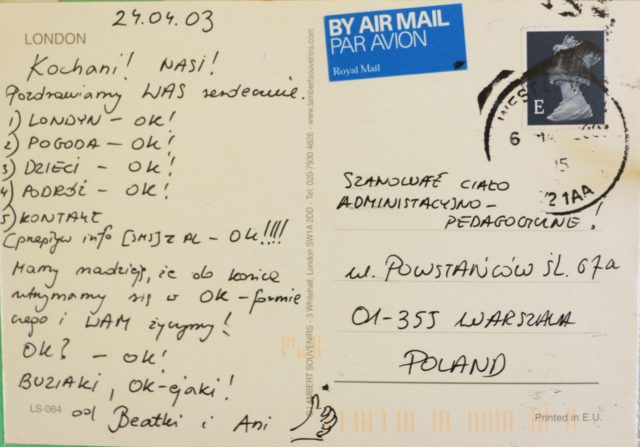 24.04.03
LONDON
Kochani! NASI!
Pozdrawiamy WAS serdecznie.
1) LONDYN - OK!
2) POGODA - OK!
3) DZIECI - OK!
4) PODRÓŻ - OK!
5) KONTAKT
(przepływ info [SMS] z PL - OK!!!!
Mamy nadzieję, że do końca
utrzymamy się w OK-formie
czego i WAM życzymy!
OK? - OK!
BUZIAKI, OK-ejaki!
od Beatki i Ani
LS-064
© LAMBERT SOUVENIRS - 3 Whitehall, London SW1A 2DD - Tel: 020-7930 4826 - www.lambertsouvenirs.com
BY AIR MAIL
PAR AVION
Royal Mail
E
6
21AA
SZANOWNE CIAŁO
ADMINISTACYJNO-
PEDAGOGICZNE!
ul. POWSTAŃCÓW ŚL. 67a
01-355 WARSZAWA
POLAND
Printed in E.U.